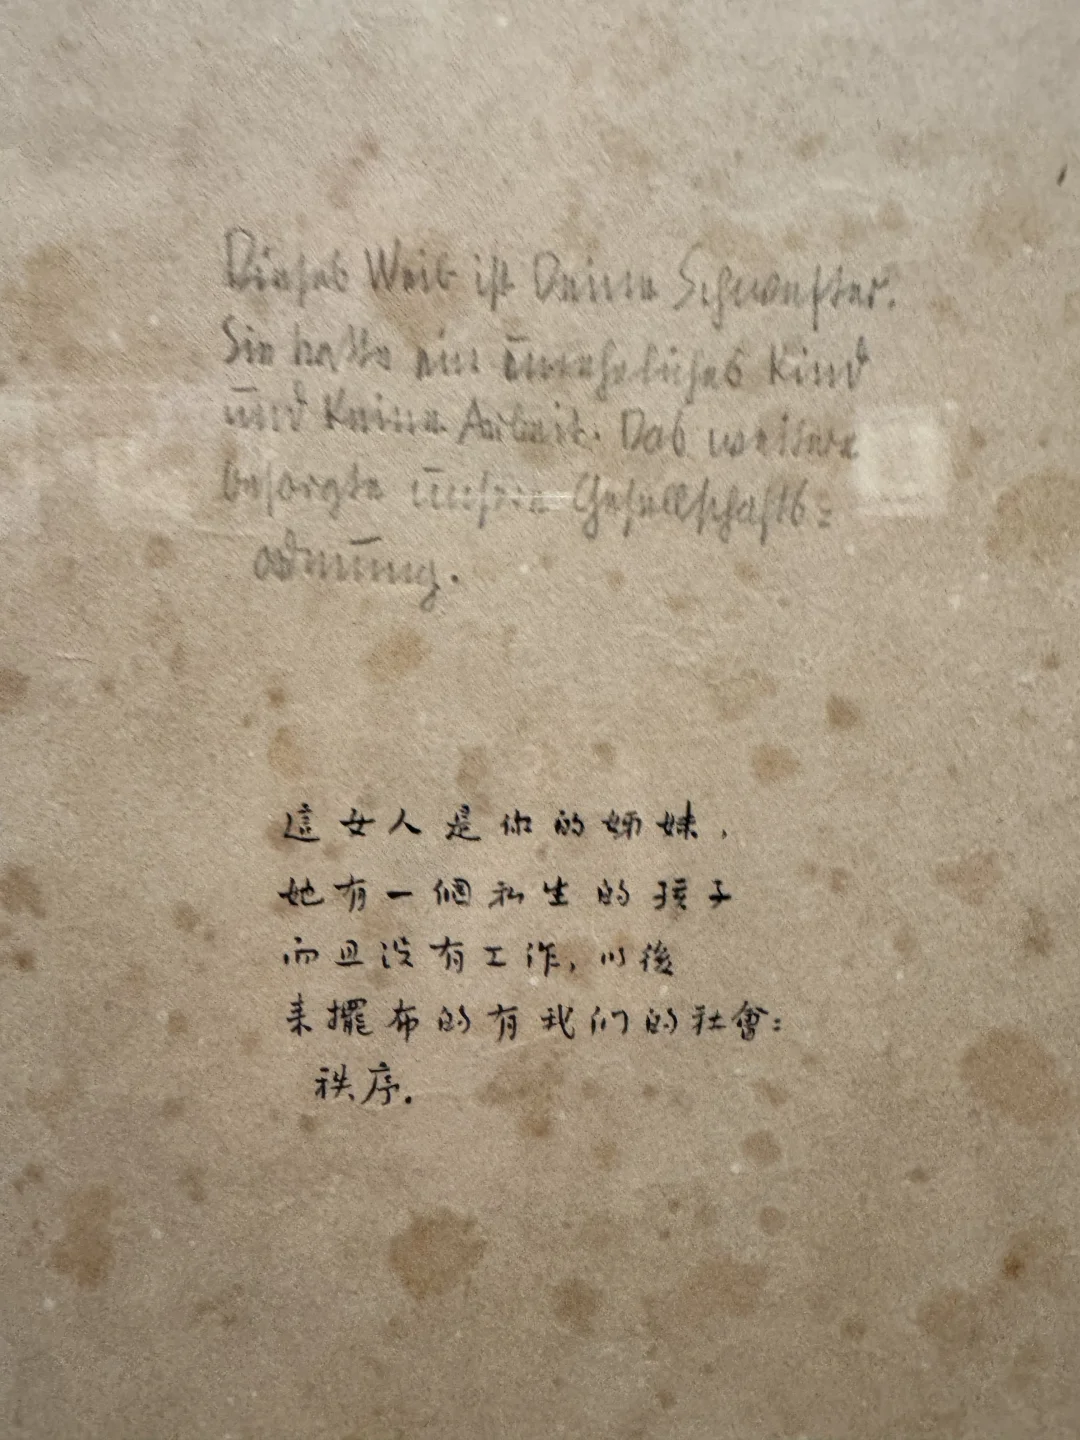 Dieses Weib ist Deine Schwester.
Sie hatte ein unehrliches Kind
und Keine Arbeit. Das weitere
besorgte unsere Gesellschafts=
ordnung.
這女人是你的姊妹，
她有一個私生的孩子
而且没有工作，以後
来擺布的有我们的社會：
秩序．